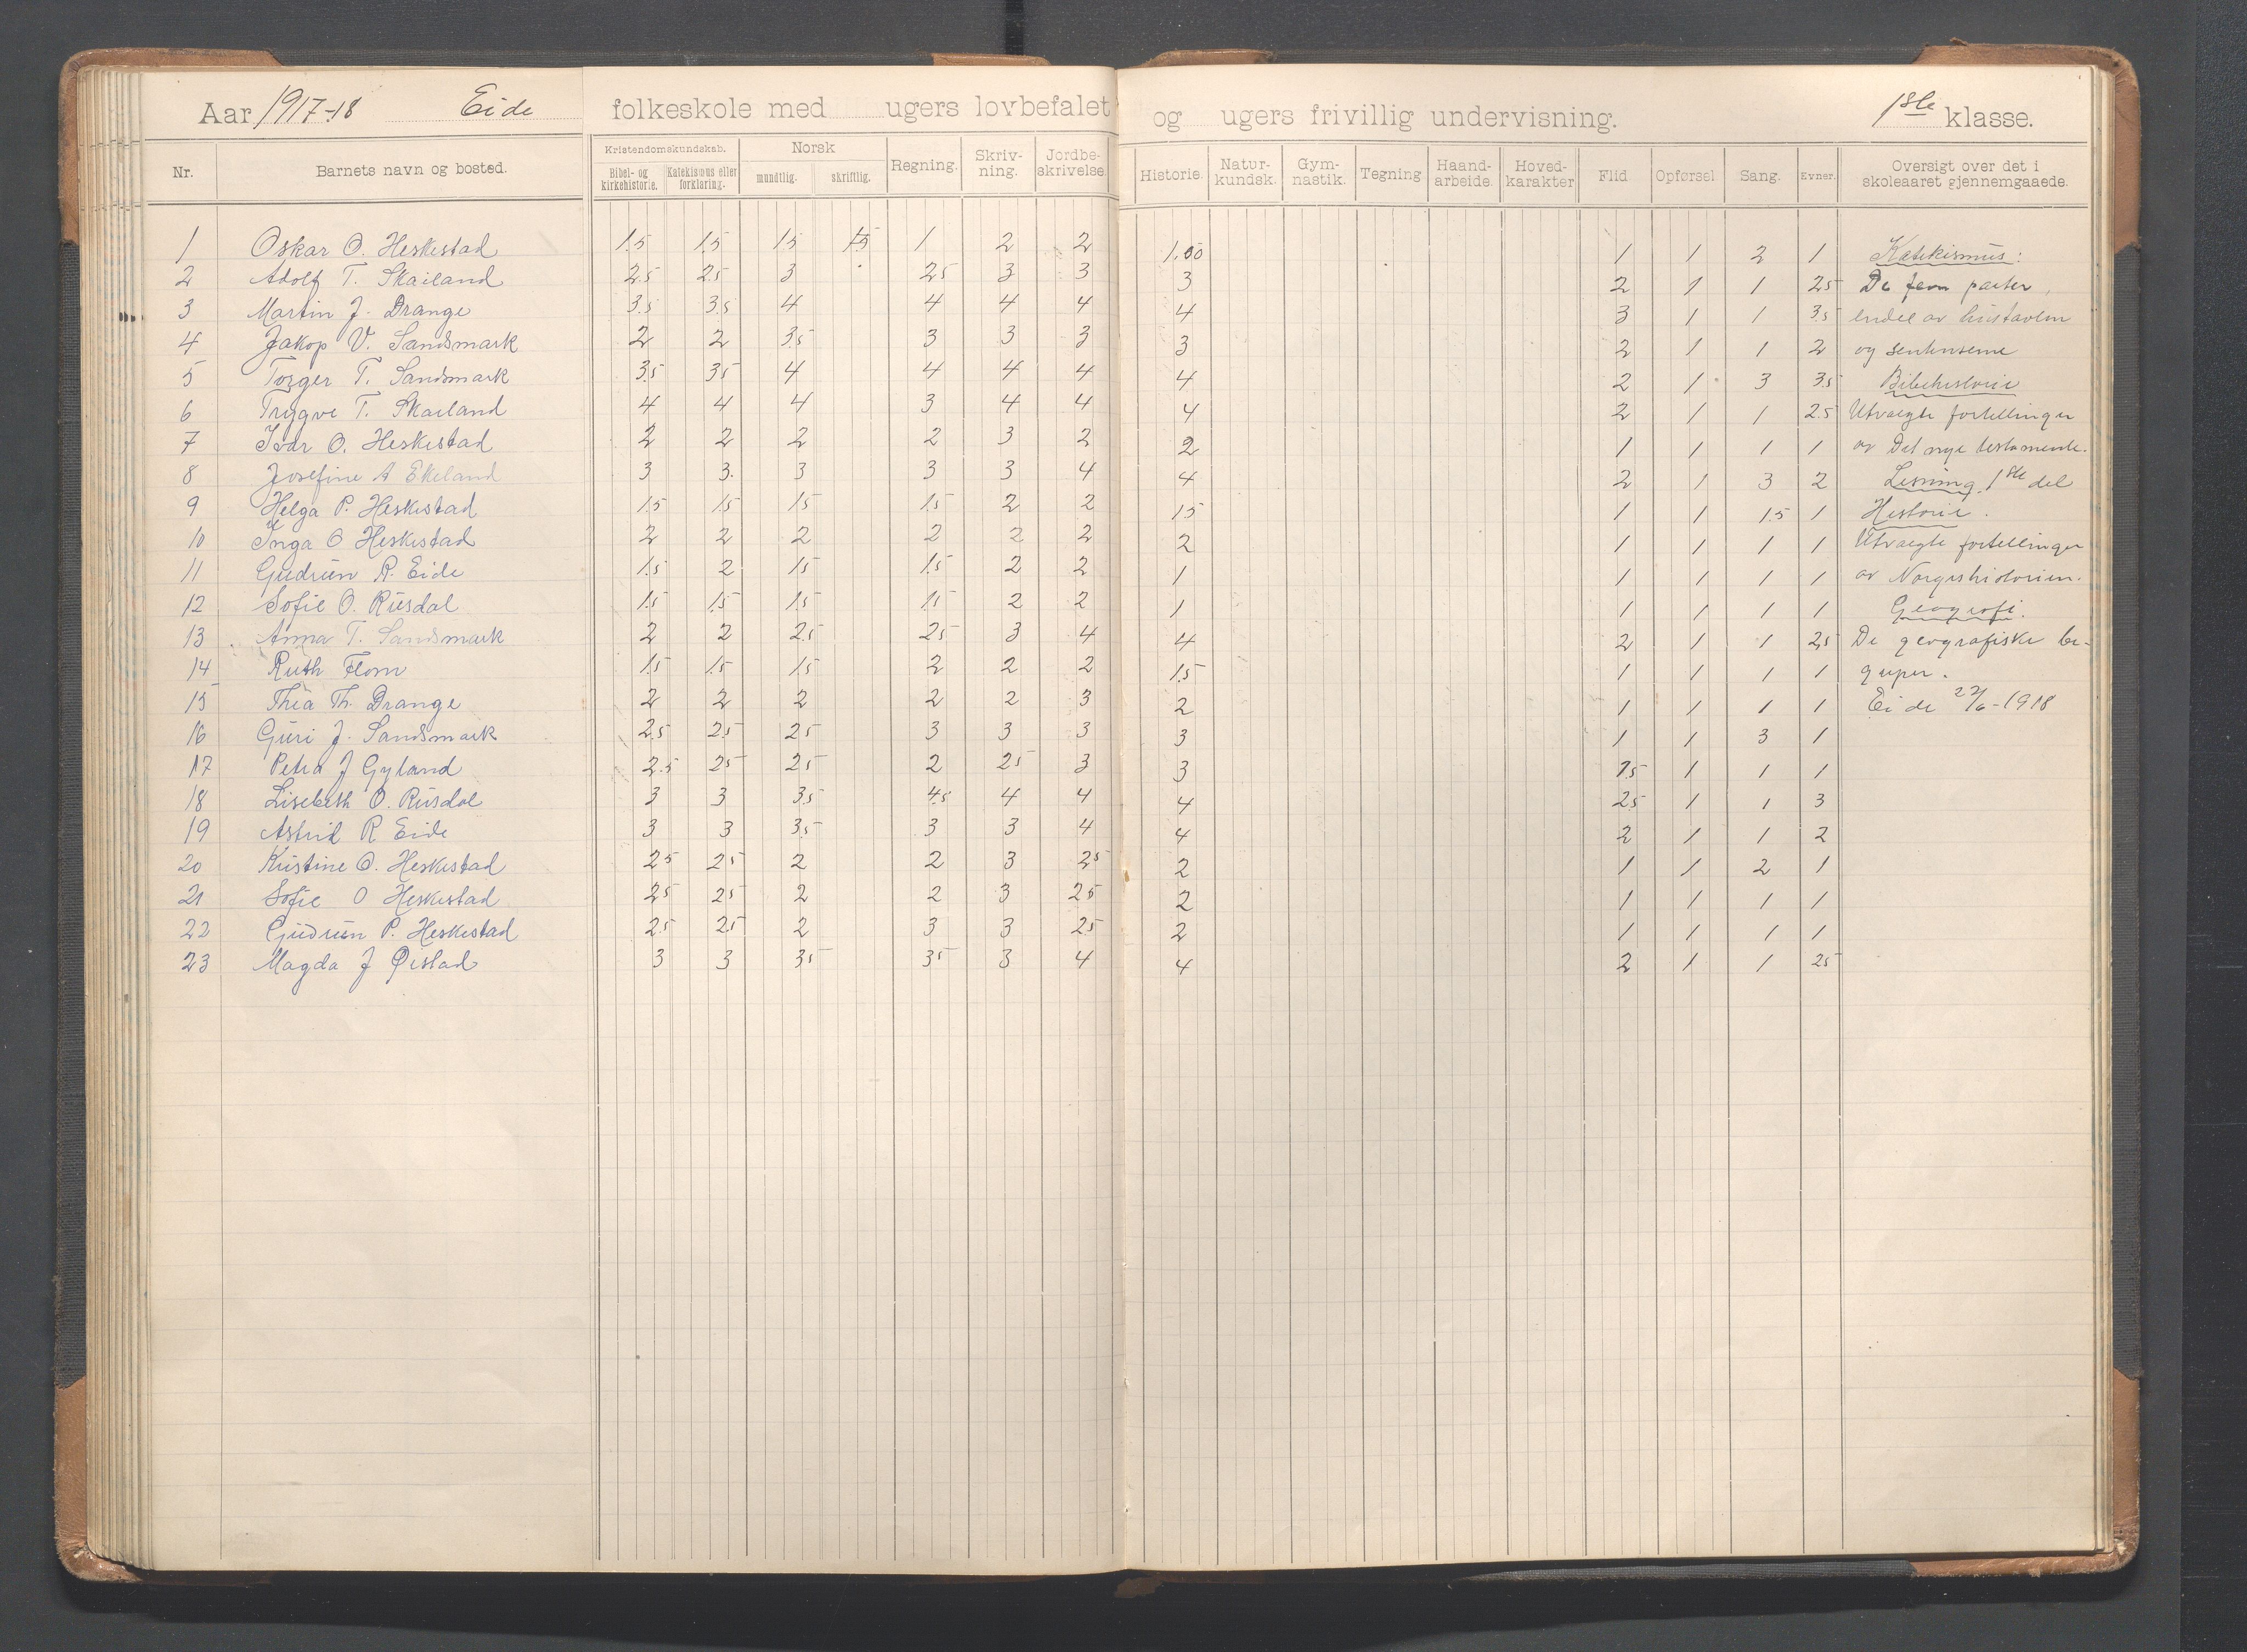 Aar 1917-18 Eide folkeskole med ugers lovbefalet og ugers frivillig undervisning. 1ste klasse.
Nr. Barnets navn og bosted. Kristendomskundskab. Bibel- og kirkehistorie. Katekismus eller forklaring. Norsk mundtlig. skriftlig. Regning. Skriv-ning. Jordbe-skrivelse. Historie. Natur-kundsk. Gym-nastik. Tegning Haand-arbeide. Hoved-karakter Flid Opførsel Sang. Evner. Oversigt over det i skoleaaret gjennemgaaede.
1 Oskar O. Heskestad 1.5 1.5 1.5 1.5 1 2 2 1.00 1 1 2 1 Katekismus:
2 Adolf T. Skailand 2.5 2.5 3 2.5 3 3 3 2 1 1 2.5 De fem parter,
3 Martin J. Drange 3.5 3.5 4 4 4 4 4 3 1 1 3.5 endel av hustavlen
4 Jakop V. Sandsmark 2 2 3.5 3 3 3 3 2 1 1 2 og
5 Torger T. Sandsmark 3.5 3.5 4 4 4 4 4 2 1 3 3.5 Bibelhistorie
6 Trygve T. Skailand 4 4 4 3 4 4 4 2 1 1 2.5 Utvalgte fortellinger
7 Ivar O. Heskestad 2 2 2 2 3 2 2 1 1 1 1 av Det nye testamente.
8 Josefine A Ekeland 3 3. 3 3 3 4 4 2 1 3 2 Lesning 1ste del
9 Helga P. Heskestad 1.5 1.5 1.5 1.5 2 2 1.5 1 1 1.5 1 Historie.
10 Inga O Heskestad 2 2 2 2 2 2 2 1 1 1 1 Utvalgte fortellinger
11 Gudrun R. Eide 1.5 2 1.5 1.5 2 2 1 1 1 1 1 av Norgeshistorien.
12 Sofie O. Rusdal 1.5 1.5 1.5 1.5 2 2 1 1 1 1 1 Geografi.
13 Anna T. Sandsmark 2 2 2.5 2.5 3 4 4 2 1 1 2.5 De geografiske be-
14 Ruth Flom 1.5 1.5 1.5 2 2 2 1.5 1 1 1 1 greper.
15 Thea Th. Drange 2 2 2 2 2 3 2 1 1 1 1 Eide 22/6-1918
16 Guri J. Sandsmark 2.5 2.5 2.5 3 3 3 3 1 1 3 1
17 Petra J Gyland 2.5 2.5 2.5 2 2.5 3 3 1.5 1 1 1
18 Lisebeth O. Rusdal 3 3 3.5 4.5 4 4 4 2.5 1 1 3
19 Astrid R Eide 3 3 3.5 3 3 4 4 2 1 1 2
20 Kristine O. Heskestad 2.5 2.5 2 2 3 2.5 2 1 1 2 1
21 Sofie O Heskestad 2.5 2.5 2 2 3 2.5 2 1 1 1 1
22 Gudrun P. Heskestad 2.5 2.5 2 3 3 2.5 2 1 1 1 1
23 Magda J Øistad 3 3 3.5 3.5 3 4 4 2 1 1 2.5